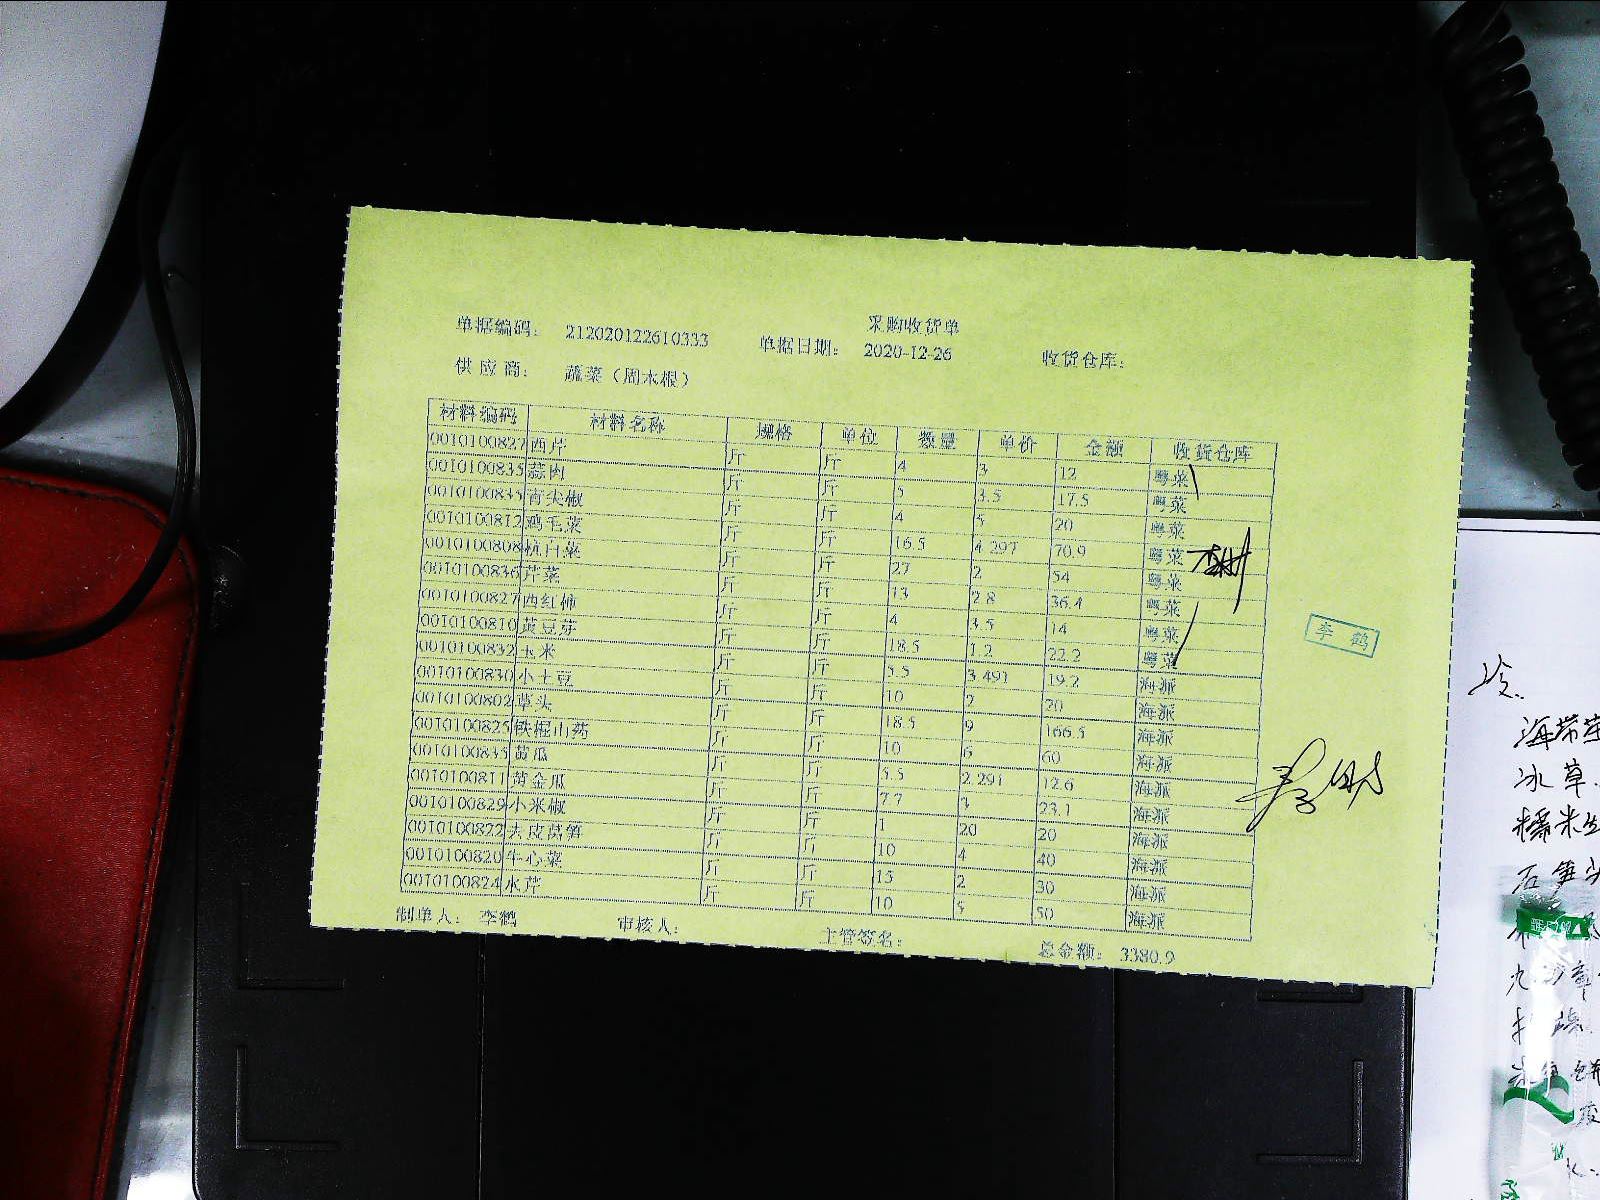 采购收货单
单据编码： 212020122610333 单据日期： 2020-12-26 收货仓库：
供应商： 蔬菜（周木根）
材料编码 材料名称 规格 单位 数量 单价 金额 收货仓库
0010100827 西芹 斤 斤 4 3 12 粤菜
0010100835 蒜肉 斤 斤 5 3.5 17.5 粤菜
0010100835 青尖椒 斤 斤 4 5 20 粤菜
0010100812 鸡毛菜 斤 斤 16.5 4.297 70.9 粤菜
0010100808 杭白菜 斤 斤 27 2 54 粤菜
0010100836 芹菜 斤 斤 13 2.8 36.4 粤菜
0010100827 西红柿 斤 斤 4 3.5 14 粤菜
0010100810 黄豆芽 斤 斤 18.5 1.2 22.2 粤菜
0010100832 玉米 斤 斤 5.5 3.491 19.2 海派
0010100830 小土豆 斤 斤 10 2 20 海派
0010100802 草头 斤 斤 18.5 9 166.5 海派
0010100825 铁棍山药 斤 斤 10 6 60 海派
0010100835 黄瓜 斤 斤 5.5 2.291 12.6 海派
0010100811 黄金瓜 斤 斤 7.7 3 23.1 海派
0010100829 小米椒 斤 斤 1 20 20 海派
0010100822 去皮莴笋 斤 斤 10 4 40 海派
0010100820 牛心菜 斤 斤 15 2 30 海派
0010100824 水芹 斤 斤 10 5 50 海派
制单人： 李鹤 审核人： 主管签名： 总金额： 3380.9
李鹤
冷.
海带
冰草.
糯米
石笋